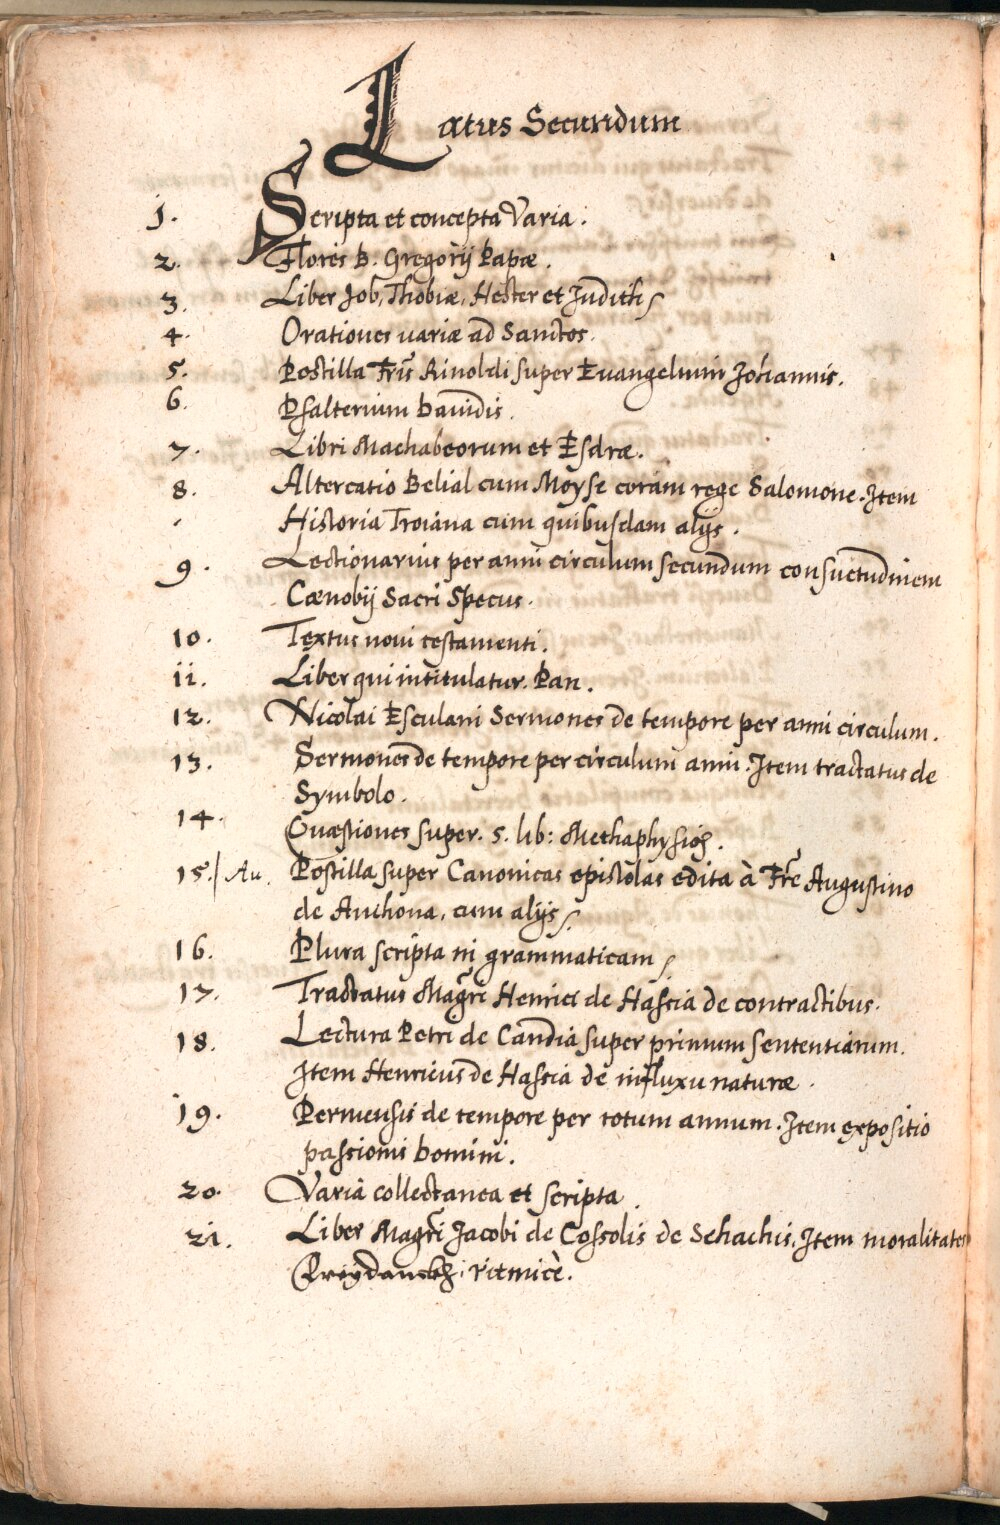 Latus Secundum
1. Scripta et concepta Varia.
2. Flores B. Gregorij Papæ.
3. Liber Job, Thobiæ, Hester et Judith.
4. Orationes variæ ad Sanctos.
5. Postilla Fris Rinoldi super Evangelium Johannis.
6. Psalterium Dauidis.
7. Libri Machabeorum et Esdræ.
8. Altercatio Belial cum Moyse coram rege Salomone. Item
Historia Troiana cum quibusdam alijs.
9. Lectionarius per anni circulum secundum consuetudinem
Cænobij Sacri Specus.
10. Textus noui testamenti.
11. Liber qui intitulatur. Pan.
12. Nicolai Esculani Sermones de tempore per anni circulum.
13. Sermones de tempore per circulum anni. Item tractatus de
Symbolo.
14. Quæstiones super. 5. lib: Methaphysicæ.
15. / Au. Postilla super Canonicas epistolas edita à Fre Augustino
de Anchona, cum alijs.
16. Plura scripta in grammaticam.
17. Tractatus Magri Henrici de Hassia de contractibus.
18. Lectura Petri de Candia super primum sententiarum.
Item Henricus de Hassia de influxu naturæ.
19. Permensis de tempore per totum annum. Item expositio
passionis Domini.
20. Varia collectanea et scripta.
21. Liber Magri Jacobi de Cossolis de Schachis. Item moralitates
Freydanckh: ritmicè.